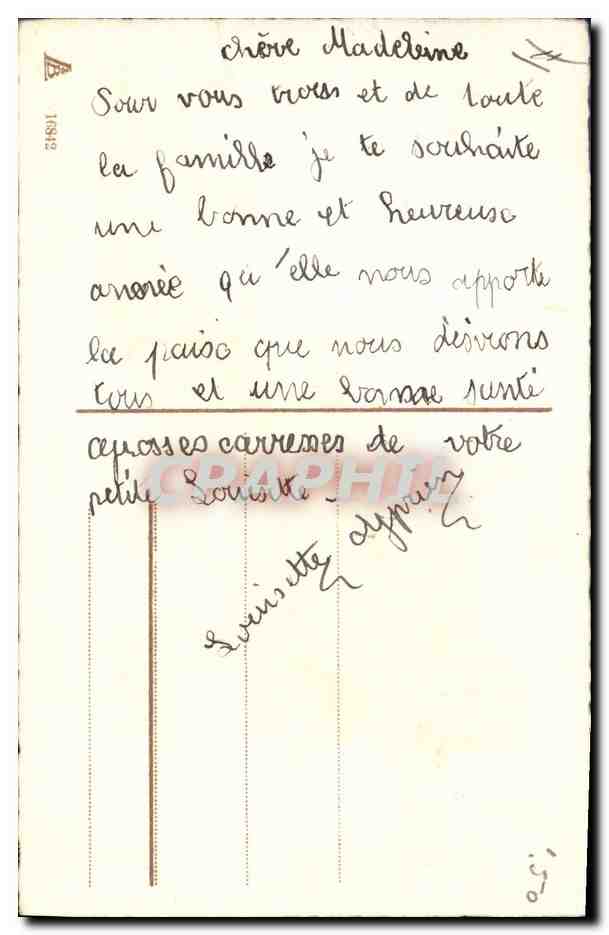 chère Madeleine
Pour vous trois et de toute
la famille je te souhaite
une bonne et heureuse
année qu'elle nous apporte
la paisc que nous désirons
tous et une bonne santé
grosses carresses de votre
petite Louisette -
Louisette Cyprien
AB
16842
CPAPHIL
1,50